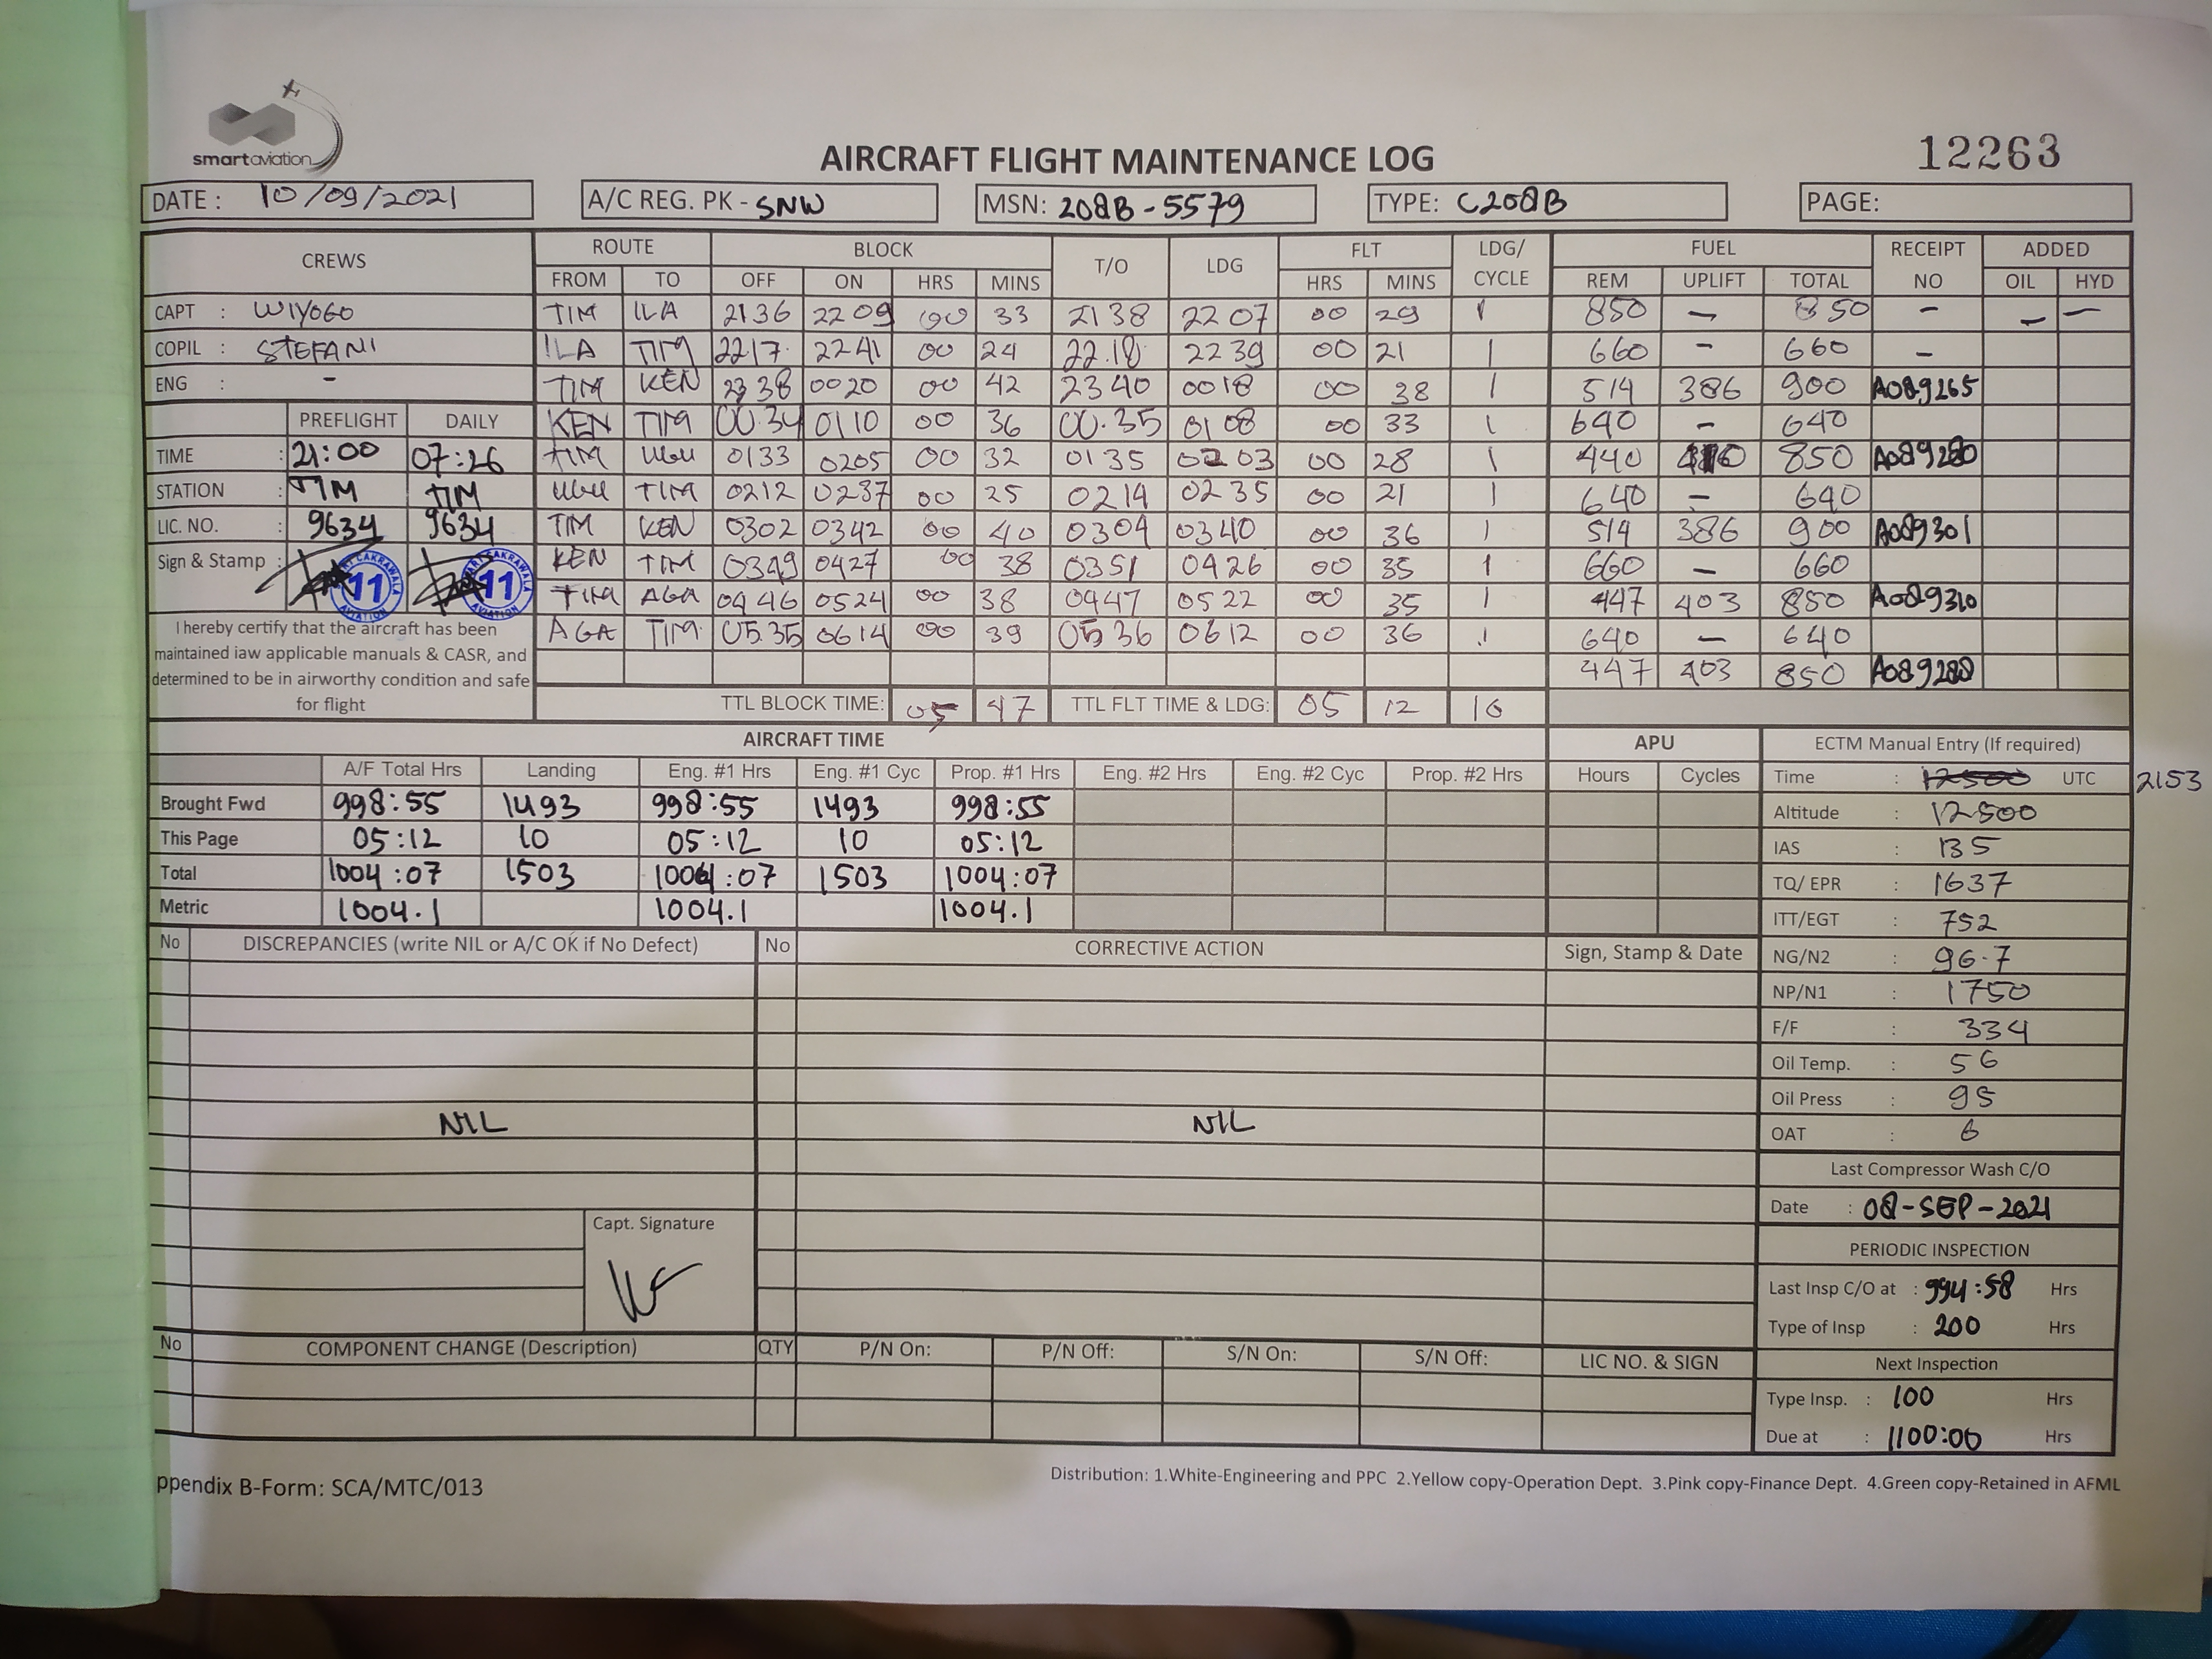 smartaviation
AIRCRAFT FLIGHT MAINTENANCE LOG
12263
DATE : 10/09/2021 A/C REG. PK - SNW MSN: 208B-5579 TYPE: C208B PAGE:
CREWS ROUTE BLOCK T/O LDG FLT LDG/ CYCLE FUEL RECEIPT NO ADDED
FROM TO OFF ON HRS MINS HRS MINS REM UPLIFT TOTAL OIL HYD
CAPT : WIYOGO TIM ILA 2136 2209 00 33 2138 2207 00 29 1 850 - 850 - - -
COPIL : STEFANI ILA TIM 2217 2241 00 24 22.18 2239 00 21 1 660 - 660 -
ENG : - TIM KEN 2338 0020 00 42 2340 0018 00 38 1 514 386 900 A089265
PREFLIGHT DAILY KEN TIM 00.34 0110 00 36 00.35 0108 00 33 1 640 - 640
TIME : 21:00 07:26 TIM UGU 0133 0205 00 32 0135 0203 00 28 1 440 410 850 A089280
STATION : TIM TIM UGU TIM 0212 0237 00 25 0214 0235 00 21 1 640 - 640
LIC. NO. : 9634 9634 TIM KEN 0302 0342 00 40 0304 0340 00 36 1 514 386 900 A089301
Sign & Stamp : 11 11 KEN TIM 0349 0427 00 38 0351 0426 00 35 1 660 - 660
TIM AGA 0446 0524 00 38 0447 0522 00 35 1 447 403 850 A089310
AGA TIM 05.35 0614 00 39 0536 0612 00 36 1 640 - 640
447 403 850 A089288
I hereby certify that the aircraft has been
maintained iaw applicable manuals & CASR, and
determined to be in airworthy condition and safe
for flight
TTL BLOCK TIME: 05 47 TTL FLT TIME & LDG: 05 12 10
AIRCRAFT TIME APU ECTM Manual Entry (If required)
A/F Total Hrs Landing Eng. #1 Hrs Eng. #1 Cyc Prop. #1 Hrs Eng. #2 Hrs Eng. #2 Cyc Prop. #2 Hrs Hours Cycles
Brought Fwd 998:55 1493 998:55 1493 998:55
This Page 05:12 10 05:12 10 05:12
Total 1004:07 1503 1004:07 1503 1004:07
Metric 1004.1 1004.1 1004.1
Time : 12500 UTC 2153
Altitude : 12500
IAS : 135
TQ/ EPR : 1637
ITT/EGT : 752
NG/N2 : 96.7
NP/N1 : 1750
F/F : 334
Oil Temp. : 56
Oil Press : 95
OAT : 6
Last Compressor Wash C/O
Date : 08-SEP-2021
PERIODIC INSPECTION
Last Insp C/O at : 994:58 Hrs
Type of Insp : 200 Hrs
Next Inspection
Type Insp. : 100 Hrs
Due at : 1100:00 Hrs
No DISCREPANCIES (write NIL or A/C OK if No Defect) No CORRECTIVE ACTION Sign, Stamp & Date
NIL NIL
Capt. Signature
No COMPONENT CHANGE (Description) QTY P/N On: P/N Off: S/N On: S/N Off: LIC NO. & SIGN
ppendix B-Form: SCA/MTC/013
Distribution: 1.White-Engineering and PPC 2.Yellow copy-Operation Dept. 3.Pink copy-Finance Dept. 4.Green copy-Retained in AFML